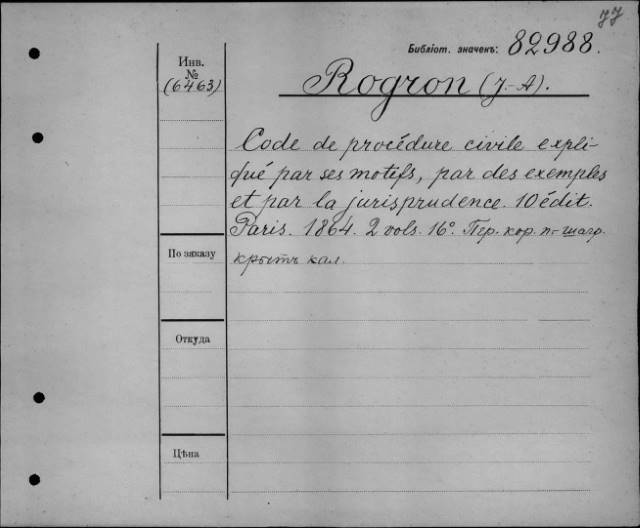 77
Библіот. значекъ: 82988.
Инв.
№
(6463)
Rogron (J.-A).
Code de procédure civile expli-
qué par ses motifs, par des exemples
et par la jurisprudence. 10 édit.
Paris. 1864. 2 vols. 16°. Пер. кор. п.-шагр.
По заказу
крыть кал.
Откуда
Цѣна